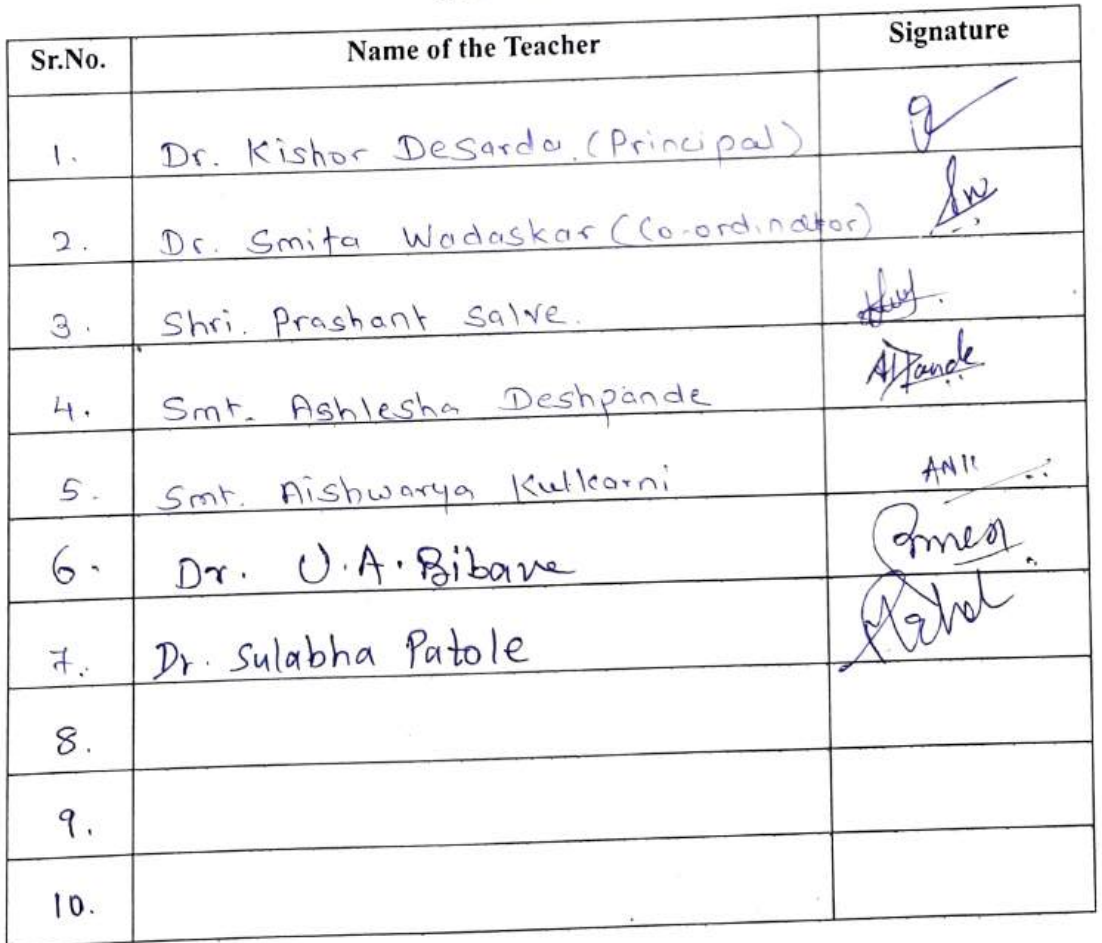 Sr.No. Name of the Teacher Signature
1. Dr. Kishor Desarda (Principal)
2. Dr. Smita Wadaskar (Co-ordinator)
3. Shri. Prashant Salve.
4. Smt. Ashlesha Deshpande
5. Smt. Aishwarya Kulkarni
6. Dr. U.A. Bibave
7. Dr. Sulabha Patole
8.
9.
10.